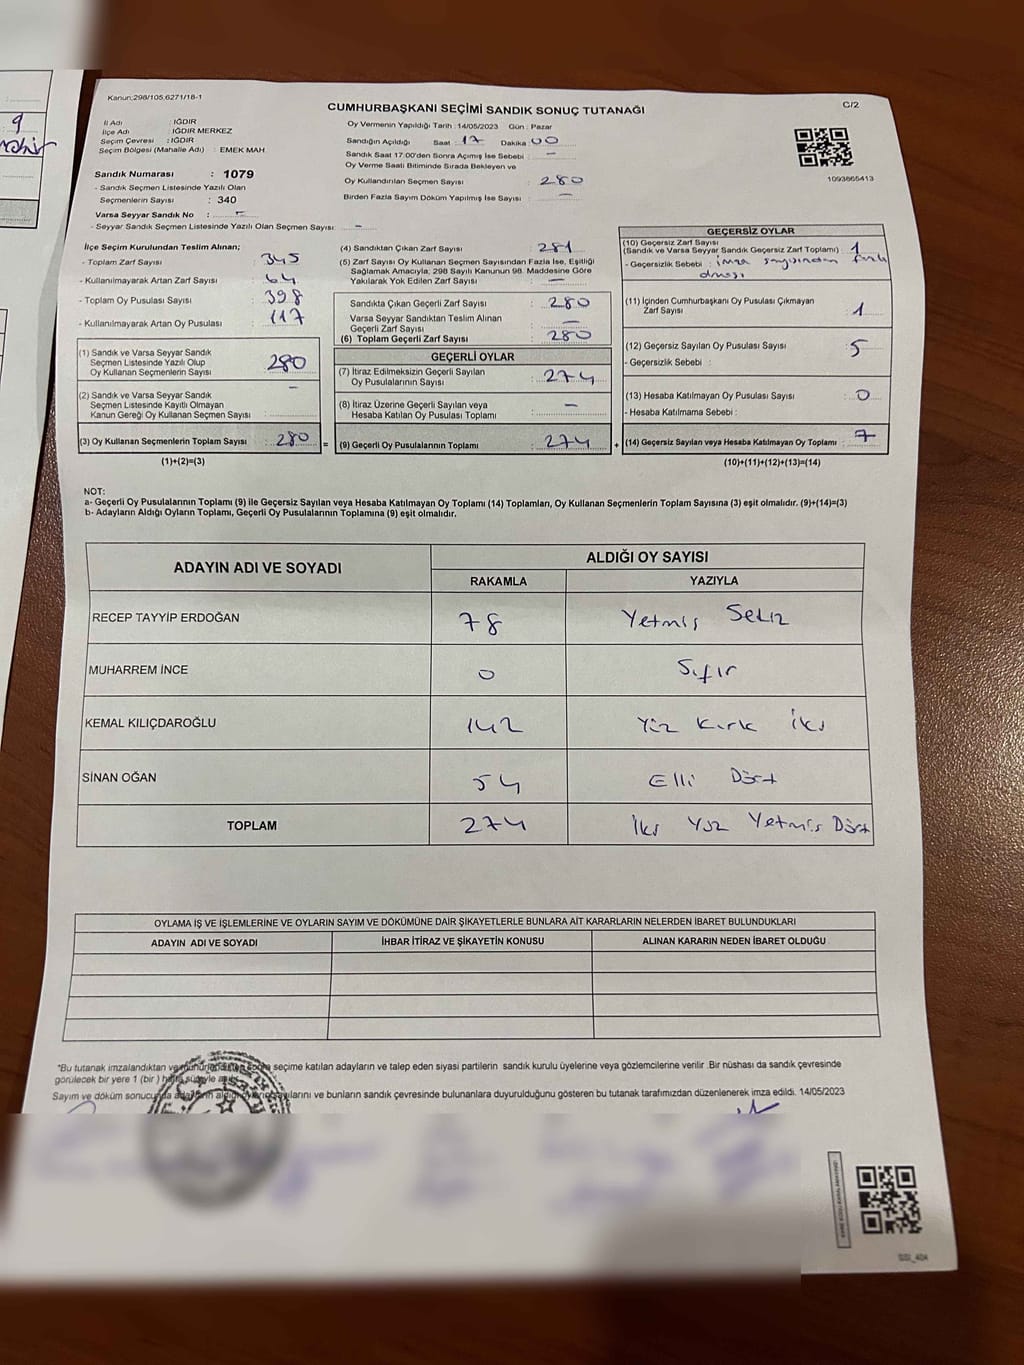 9
Kanun:298/105,6271/18-1
CUMHURBAŞKANI SEÇİMİ SANDIK SONUÇ TUTANAĞI
C/2
İl Adı : IĞDIR
İlçe Adı : IĞDIR MERKEZ
Seçim Çevresi : IĞDIR
Seçim Bölgesi (Mahalle Adı) : EMEK MAH.
Sandık Numarası : 1079
- Sandık Seçmen Listesinde Yazılı Olan
Seçmenlerin Sayısı : 340
Varsa Seyyar Sandık No : -
- Seyyar Sandık Seçmen Listesinde Yazılı Olan Seçmen Sayısı: -
Oy Vermenin Yapıldığı Tarih :14/05/2023 Gün : Pazar
Sandığın Açıldığı Saat : 17 Dakika : 00
Sandık Saat 17:00'den Sonra Açımış İse Sebebi : -
Oy Verme Saati Bitiminde Sırada Bekleyen ve
Oy Kullandırılan Seçmen Sayısı : 280
Birden Fazla Sayım Döküm Yapılmış İse Sayısı : -
1093865413
İlçe Seçim Kurulundan Teslim Alınan;
- Toplam Zarf Sayısı : 345
- Kullanılmayarak Artan Zarf Sayısı : 64
- Toplam Oy Pusulası Sayısı : 398
- Kullanılmayarak Artan Oy Pusulası : 117
(1) Sandık ve Varsa Seyyar Sandık
Seçmen Listesinde Yazılı Olup
Oy Kullanan Seçmenlerin Sayısı : 280
(2) Sandık ve Varsa Seyyar Sandık
Seçmen Listesinde Kayıtlı Olmayan
Kanun Gereği Oy Kullanan Seçmen Sayısı : -
(3) Oy Kullanan Seçmenlerin Toplam Sayısı : 280
(1)+(2)=(3)
(4) Sandıktan Çıkan Zarf Sayısı : 281
(5) Zarf Sayısı Oy Kullanan Seçmen Sayısından Fazla İse, Eşitliği
Sağlamak Amacıyla; 298 Sayılı Kanunun 98. Maddesine Göre
Yakılarak Yok Edilen Zarf Sayısı : -
Sandıkta Çıkan Geçerli Zarf Sayısı : 280
Varsa Seyyar Sandıktan Teslim Alınan
Geçerli Zarf Sayısı : -
(6) Toplam Geçerli Zarf Sayısı : 280
GEÇERLİ OYLAR
(7) İtiraz Edilmeksizin Geçerli Sayılan
Oy Pusulalarının Sayısı : 274
(8) İtiraz Üzerine Geçerli Sayılan veya
Hesaba Katılan Oy Pusulası Toplamı : -
= (9) Geçerli Oy Pusulalarının Toplamı : 274
GEÇERSİZ OYLAR
(10) Geçersiz Zarf Sayısı
(Sandık ve Varsa Seyyar Sandık Geçersiz Zarf Toplamı) : 1
- Geçersizlik Sebebi : imza sayısından fazla
olması
(11) İçinden Cumhurbaşkanı Oy Pusulası Çıkmayan
Zarf Sayısı : 1
(12) Geçersiz Sayılan Oy Pusulası Sayısı : 5
- Geçersizlik Sebebi :
(13) Hesaba Katılmayan Oy Pusulası Sayısı : 0
- Hesaba Katılmama Sebebi :
+ (14) Geçersiz Sayılan veya Hesaba Katılmayan Oy Toplamı : 7
(10)+(11)+(12)+(13)=(14)
NOT:
a- Geçerli Oy Pusulalarının Toplamı (9) ile Geçersiz Sayılan veya Hesaba Katılmayan Oy Toplamı (14) Toplamları, Oy Kullanan Seçmenlerin Toplam Sayısına (3) eşit olmalıdır. (9)+(14)=(3)
b- Adayların Aldığı Oyların Toplamı, Geçerli Oy Pusulalarının Toplamına (9) eşit olmalıdır.
ADAYIN ADI VE SOYADI
ALDIĞI OY SAYISI
RAKAMLA YAZIYLA
RECEP TAYYİP ERDOĞAN 78 Yetmiş Sekiz
MUHARREM İNCE 0 Sıfır
KEMAL KILIÇDAROĞLU 142 Yüz Kırk İki
SİNAN OĞAN 54 Elli Dört
TOPLAM 274 İki Yüz Yetmiş Dört
OYLAMA İŞ VE İŞLEMLERİNE VE OYLARIN SAYIM VE DÖKÜMÜNE DAİR ŞİKAYETLERLE BUNLARA AİT KARARLARIN NELERDEN İBARET BULUNDUKLARI
ADAYIN ADI VE SOYADI İHBAR İTİRAZ VE ŞİKAYETİN KONUSU ALINAN KARARIN NEDEN İBARET OLDUĞU
*Bu tutanak imzalandıktan ve mühürlendikten sonra seçime katılan adayların ve talep eden siyasi partilerin sandık kurulu üyelerine veya gözlemcilerine verilir .Bir nüshası da sandık çevresinde
görülecek bir yere 1 (bir ) hafta süreyle asılır.
Sayım ve döküm sonucunda adayların aldığı oyların sayılarını ve bunların sandık çevresinde bulunanlara duyurulduğunu gösteren bu tutanak tarafımızdan düzenlenerek imza edildi. 14/05/2023